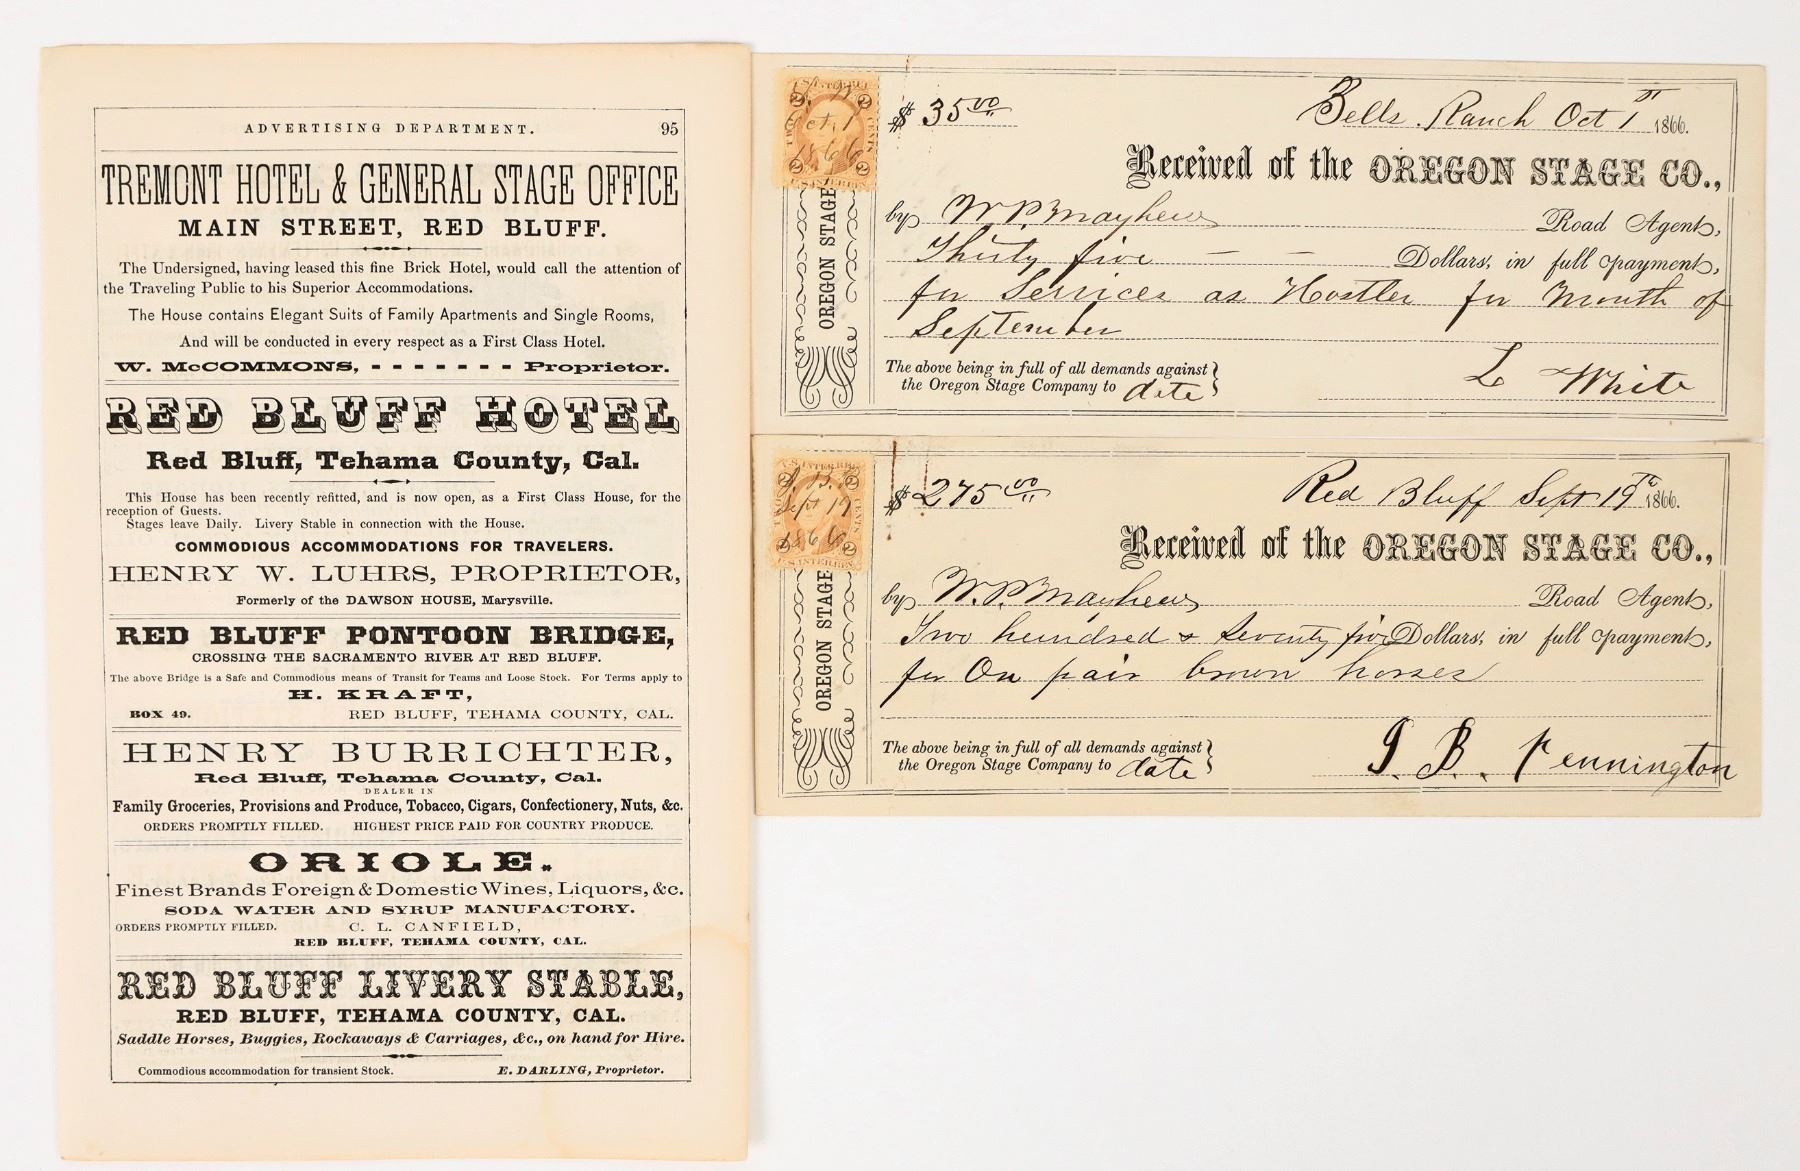 ADVERTISING DEPARTMENT. 95
TREMONT HOTEL & GENERAL STAGE OFFICE
MAIN STREET, RED BLUFF.
The Undersigned, having leased this fine Brick Hotel, would call the attention of
the Traveling Public to his Superior Accommodations.
The House contains Elegant Suits of Family Apartments and Single Rooms,
And will be conducted in every respect as a First Class Hotel.
W. McCOMMONS, - - - - - - - Proprietor.
RED BLUFF HOTEL
Red Bluff, Tehama County, Cal.
This House has been recently refitted, and is now open, as a First Class House, for the
reception of Guests.
Stages leave Daily. Livery Stable in connection with the House.
COMMODIOUS ACCOMMODATIONS FOR TRAVELERS.
HENRY W. LUHRS, PROPRIETOR,
Formerly of the DAWSON HOUSE, Marysville.
RED BLUFF PONTOON BRIDGE,
CROSSING THE SACRAMENTO RIVER AT RED BLUFF.
The above Bridge is a Safe and Commodious means of Transit for Teams and Loose Stock. For Terms apply to
H. KRAFT,
BOX 49. RED BLUFF, TEHAMA COUNTY, CAL.
HENRY BURRICHTER,
Red Bluff, Tehama County, Cal.
DEALER IN
Family Groceries, Provisions and Produce, Tobacco, Cigars, Confectionery, Nuts, &c.
ORDERS PROMPTLY FILLED. HIGHEST PRICE PAID FOR COUNTRY PRODUCE.
ORIOLE.
Finest Brands Foreign & Domestic Wines, Liquors, &c.
SODA WATER AND SYRUP MANUFACTORY.
ORDERS PROMPTLY FILLED. C. L. CANFIELD,
RED BLUFF, TEHAMA COUNTY, CAL.
RED BLUFF LIVERY STABLE,
RED BLUFF, TEHAMA COUNTY, CAL.
Saddle Horses, Buggies, Rockaways & Carriages, &c., on hand for Hire.
Commodious accommodation for transient Stock. E. DARLING, Proprietor.
U.S. INTER REV
Oct. 1
1866
U.S. INTER REV
OREGON STAGE
$ 35 00 Bells Ranch Oct 1st 1866.
Received of the OREGON STAGE CO.,
by W. P. Mayhew Road Agent,
Thirty five — — Dollars, in full payment,
for Services as Hostler for Month of
September
The above being in full of all demands against
the Oregon Stage Company to date
L White
U.S. INTER REV
J. B. P.
Sept 19
1866
U.S. INTER REV
OREGON STAGE
$ 275 00 Red Bluff Sept 19th 1866.
Received of the OREGON STAGE CO.,
by W. P. Mayhew Road Agent,
Two hundred & Seventy five Dollars, in full payment,
for On pair brown horses
The above being in full of all demands against
the Oregon Stage Company to date
J. B. Pennington